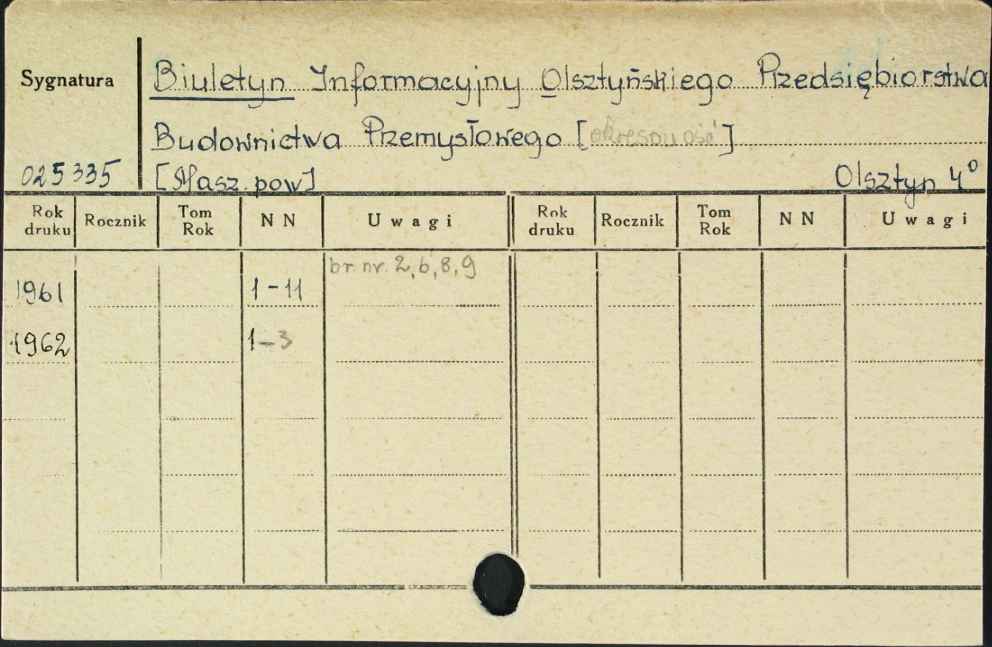 Sygnatura
Biuletyn Informacyjny Olsztyńskiego Przedsiębiorstwa
Budownictwa Przemysłowego [okresowość]
025335 [Masz. pow] Olsztyn, 4°
Rok druku Rocznik Tom Rok N N Uwagi Rok druku Rocznik Tom Rok N N Uwagi
br. nr. 2, 6, 8, 9
1961 1-11
1962 1-3